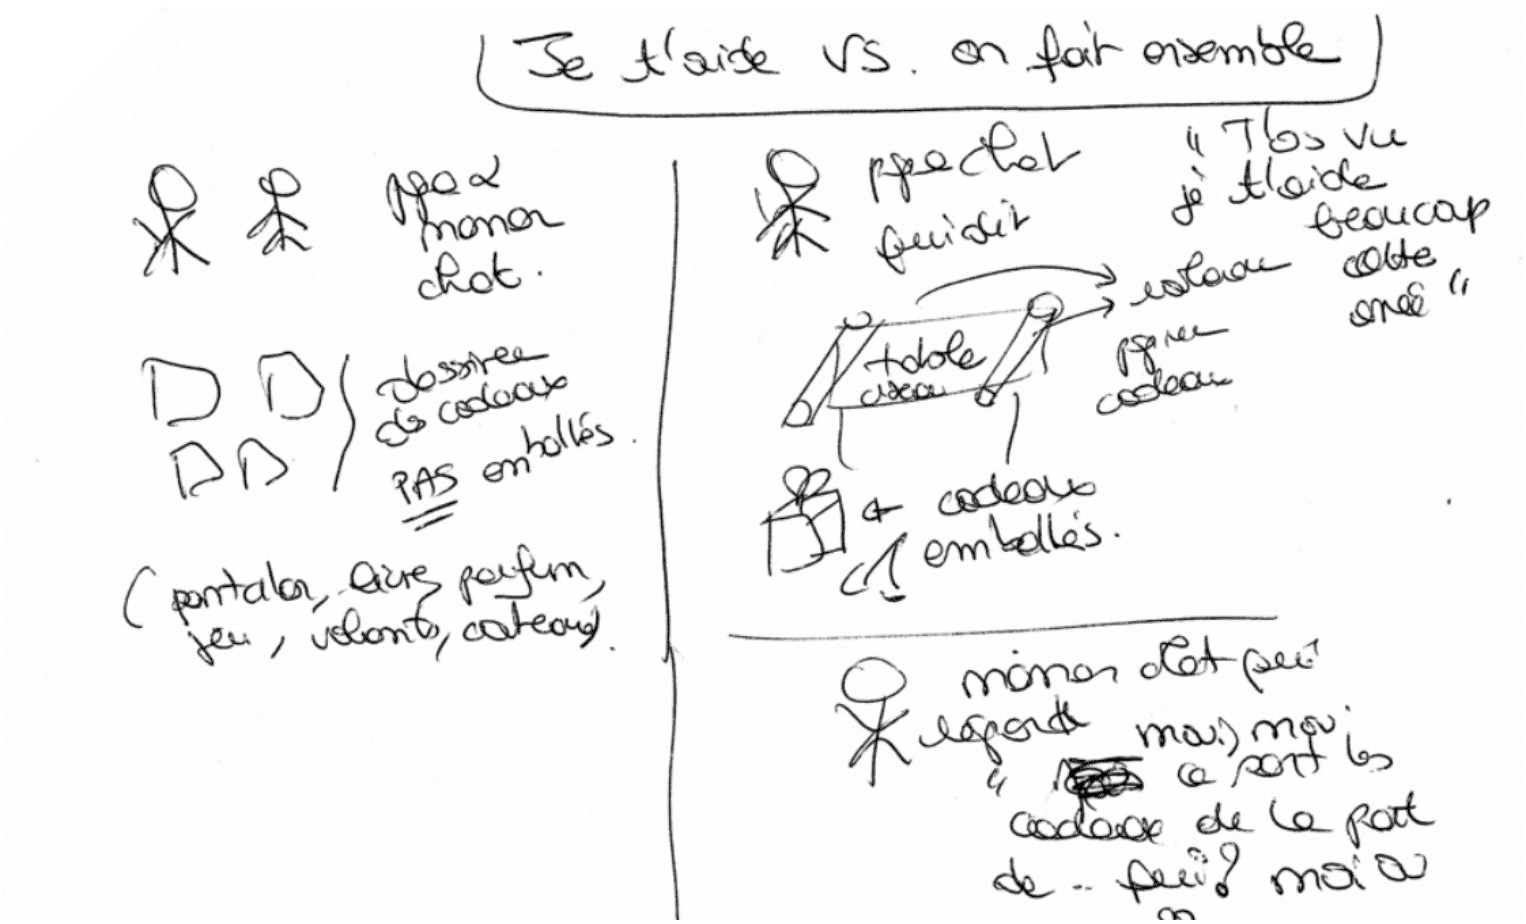 Je t'aide vs. on fait ensemble
papa &
maman
chat.
de cadeaux
PAS emballés.
(pantalon, livre, parfum,
jeu, volants, cateaux).
papa chat
qui dit
" T'as vu
je t'aide
beaucoup
cette
année "
table
ciseau
rouleau
papier
cadeau
← cadeaux
emballés.
maman chat qui
regarde
" mais, moi,
ce sont les
cadeaux de la part
de .. qui? moi ou